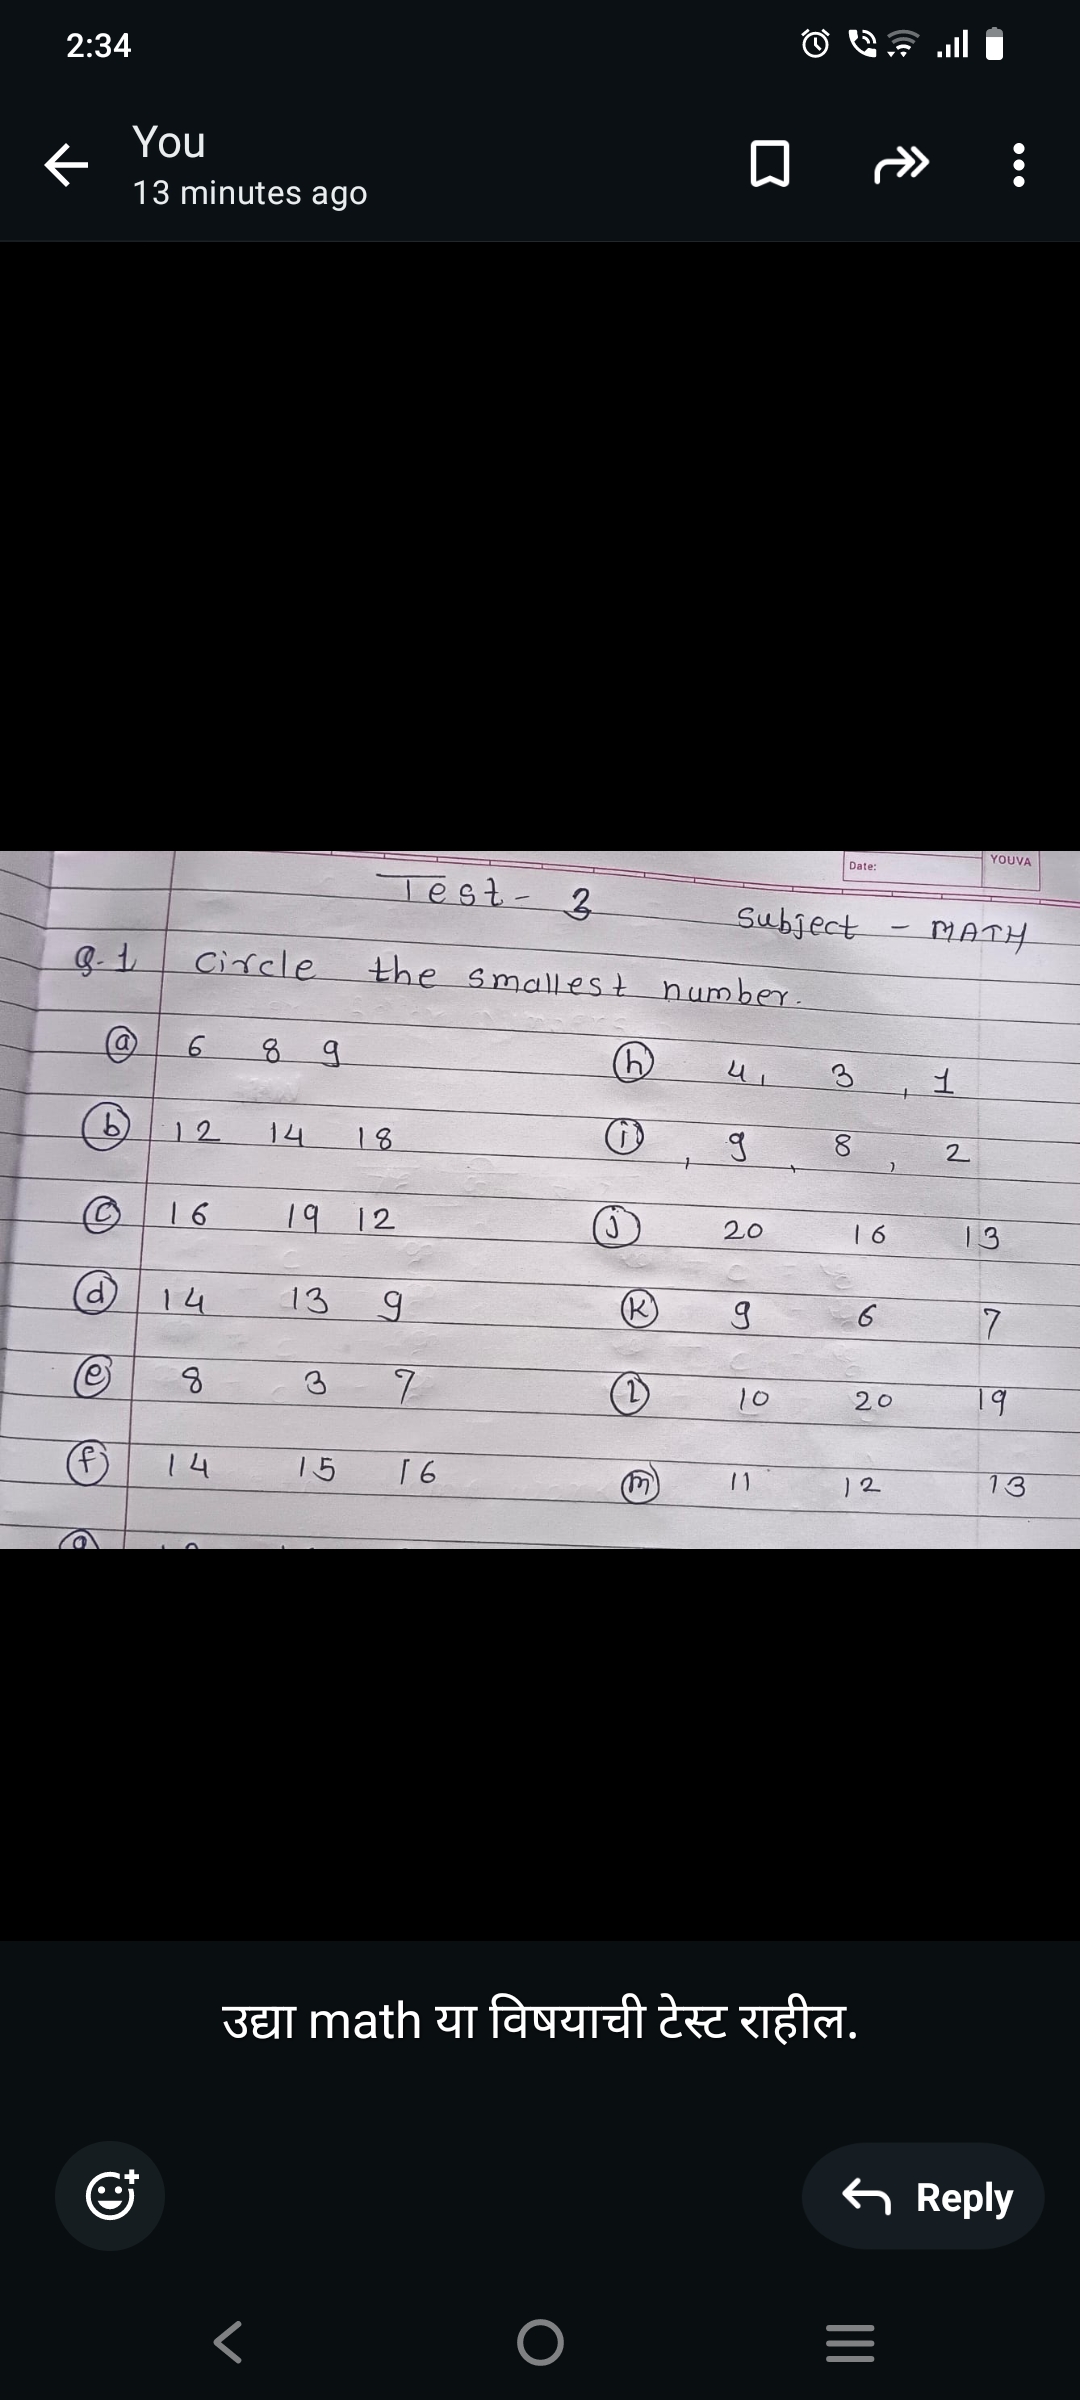 2:34
You
13 minutes ago
Date:
YOUVA
Test - 3
Subject - MATH
Q.1 Circle the smallest number.
a 6 8 9
h 4, 3, 1
b 12 14 18
i , 9, 8, 2
c 16 19 12
j 20 16 13
d 14 13 9
k 9 6 7
e 8 3 7
l 10 20 19
f 14 15 16
m 11 12 13
उद्या math या विषयाची टेस्ट राहील.
Reply